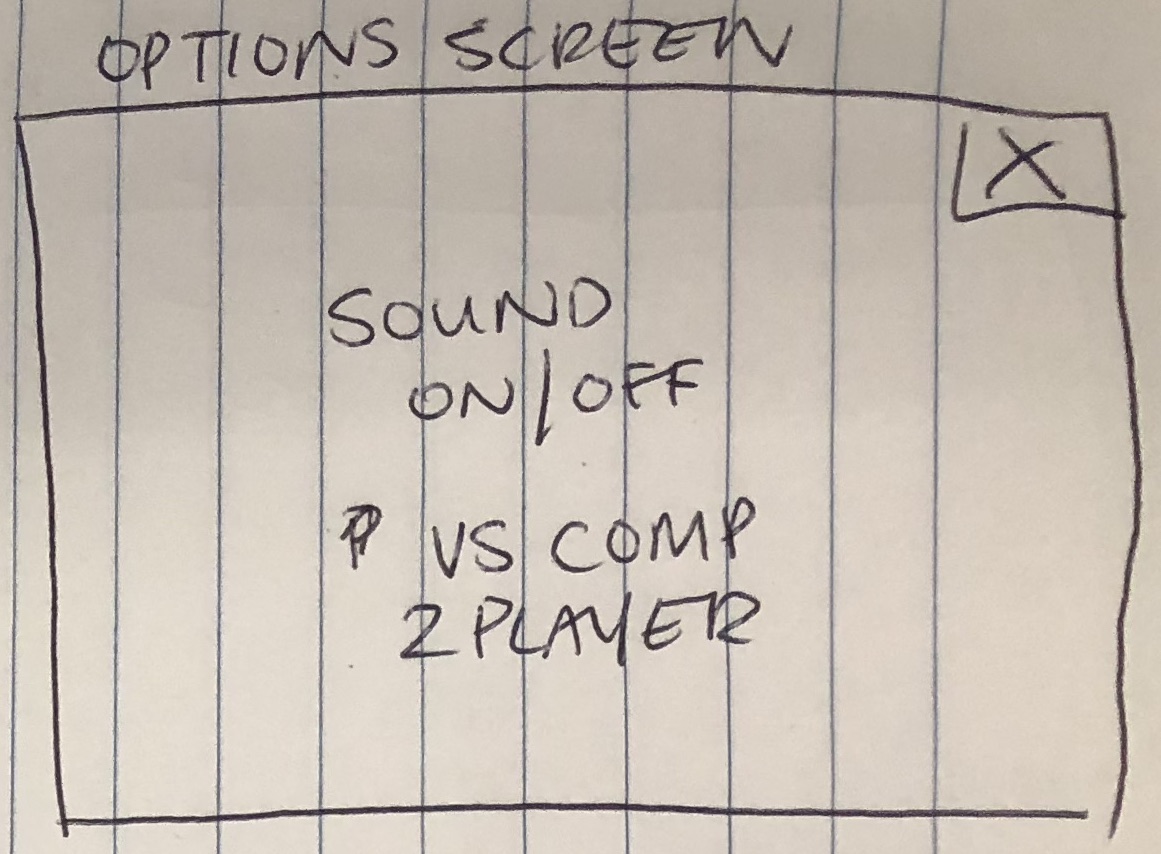 OPTIONS SCREEN
X
SOUND
ON/OFF
P VS COMP
2 PLAYER